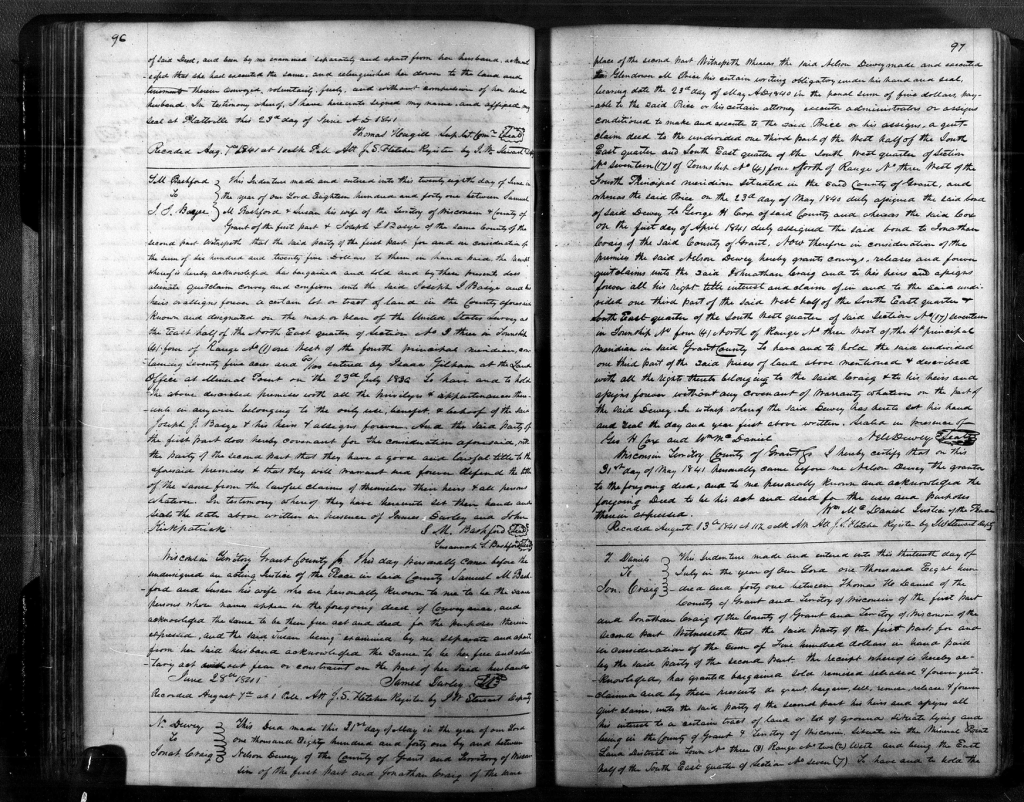 96
of said Deed, and been by me examined separately and apart from her husband, acknowl
edged that she had executed the same, and relinquished her dower to the land and
tenements therein conveyed, voluntarily, freely, and without compulsion of her said
husband. In testimony whereof, I have hereunto signed my name, and affixed my
seal at Platteville this 23rd day of June A.D 1841
Thomas Hugill Seal
Recorded Aug. 7th 1841 at Att J. S. Fletcher Register by J. W. Stewart Dep
S M Bashford
To
J. J. Basye
This Indenture made and entered into this twenty eighth day of June in
the year of our Lord Eighteen hundred and forty one between Samuel
M Bashford & Susan his wife of the Territory of Wisconsin & County of
Grant of the first part & Joseph J Basye of the same County of the
second part Witnesseth that the said party of the first part for and in consideration of
the sum of six hundred and twenty five Dollars to them in hand paid the receipt
whereof is hereby acknowledged has bargained and sold and by these presents does
alienate quitclaim convey and confirm unto the said Joseph J Basye and his
heirs & assigns forever a certain lot or tract of land in the County aforesaid
known and designated on the map or plan of the United States Survey as
the East half of the North East quarter of Section No 3 three in Township
(4) four of Range No (1) one West of the fourth principal meridian, con
taining seventy five acres and 60/100 entered by Isaac Gilham at the Land
Office at Mineral Point on the 23rd July 1836 To have and to hold
the above described premises with all the privileges & appurtenances there
unto in anywise belonging to the only use, benefit, & behoof of the said
Joseph J. Basye & his heirs & assigns forever. And the said Party of
the first part does hereby covenant for the consideration aforesaid, with
the party of the second part that they have a good and lawful title to the
aforesaid premises & that they will warrant and forever defend the title
of the same from the lawful claims of themselves their heirs & all persons
whatever. In testimony whereof they have hereunto set their hands and
seals the date above written in presence of James Durley and John
Kirkpatrick S. M. Bashford Seal
Susannah S Bashford Seal
Wisconsin Territory Grant County This day Personally came before the
undersigned an acting Justice of the Peace in said County Samuel M Bash
ford and Susan his wife who are personally known to me to be the same
persons whose names appear in the foregoing deed of Conveyance, and
acknowledged the same to be their free act and deed for the purposes therein
expressed, and the said Susan being examined by me separate and apart
from her said husband acknowledged the same to be her free and volun
tary act without fear or constraint on the part of her said husband
June 28th 1841 James Durley
Recorded August 7th at 1 Att J. S. Fletcher Register by J. W. Stewart Deputy
N. Dewey
To
Jonat Craig
This Deed made this 31st day of May in the year of our Lord
one thousand Eighty hundred and forty one by and between
Nelson Dewey of the County of Grant and Territory of Wiscon
sin of the first part and Jonathan Craig of the same
97
place of the second part Witnesseth Whereas the said Nelson Dewey made and executed
to Glendower M Price his certain writing obligatory under his hand and seal,
bearing date the 23rd day of May A D 1840 in the penal sum of five dollars pay-
able to the said Price or his certain attorney executor administrators or assigns
conditioned to make and execute to the said Price or his assigns, a quit
claim deed to the undivided one third part of the West half of the South
East quarter and South East quarter of the South West quarter of Section
No seventeen (17) of Township No (4) four North of Range No three West of the
Fourth Principal meridian situated in the said County of Grant, and
whereas the said Price on the 23rd day of May 1841 duly assigned the said bond
of said Dewey to George H Cox of said County and whereas the said Cox
on the first day of April 1841 duly assigned the said bond to Jonathan
Craig of the said County of Grant. Now therefore in consideration of the
premises the said Nelson Dewey hereby grants conveys, releases and forever
quitclaims unto the said Johnathan Craig and to his heirs and assigns
forever all his right title interest and claim of in and to the said undi-
vided one third part of the said West half of the South East quarter &
South East quarter of the South West quarter of said Section No (17) seventeen
in Township No four (4) North of Range No three West of the 4th principal
meridian in said Grant County To have and to hold the said undivided
one third part of the said pieces of land above mentioned & described
with all the right thereto belonging to the said Craig & to his heirs and
assigns forever without any covenant of warranty whatever on the part of
the said Dewey. In witness whereof the said Dewey has hereto set his hand
and seal the day and year first above written. Sealed in presence of
Geo H Cox and Wm McDaniel Nel Dewey Seal
Wisconsin Territory County of Grant I hereby certify that on this
31st day of May 1841 personally came before me Nelson Dewey the grantor
to the foregoing deed, and to me personally known and acknowledged the
foregoing Deed to be his act and deed for the uses and purposes
therein expressed. Wm McDaniel Justice of the Peace
Recorded August 13th 1841 at Att J. S. Fletcher Register by J W Stewart Dep
T. Daniels
To
Jon. Craig
This Indenture made and entered into this thirteenth day of
July in the year of Our Lord one thousand Eight hun
dred and forty one between Thomas Daniel of the
County of Grant and Territory of Wisconsin of the first part
and Jonathan Craig of the County of Grant and Territory of Wisconsin of the
second part Witnesseth that the said party of the first part for and
in consideration of the sum of Five hundred dollars in hand paid
by the said party of the second part the receipt whereof is hereby ac-
knowledged, has granted bargained sold remised released & forever quit-
claimed and by these presents do grant, bargain, sell, remise, release, & forever
quit claim, unto the said party of the second part his heirs and assigns all
his interest to a certain tract of land or lot of ground situate lying and
being in the County of Grant & Territory of Wisconsin Situate in the Mineral Point
Land District in Town No three (3) Range No two (2) West and being the East
half of the South East quarter of Section No seven (7) To have and to hold the